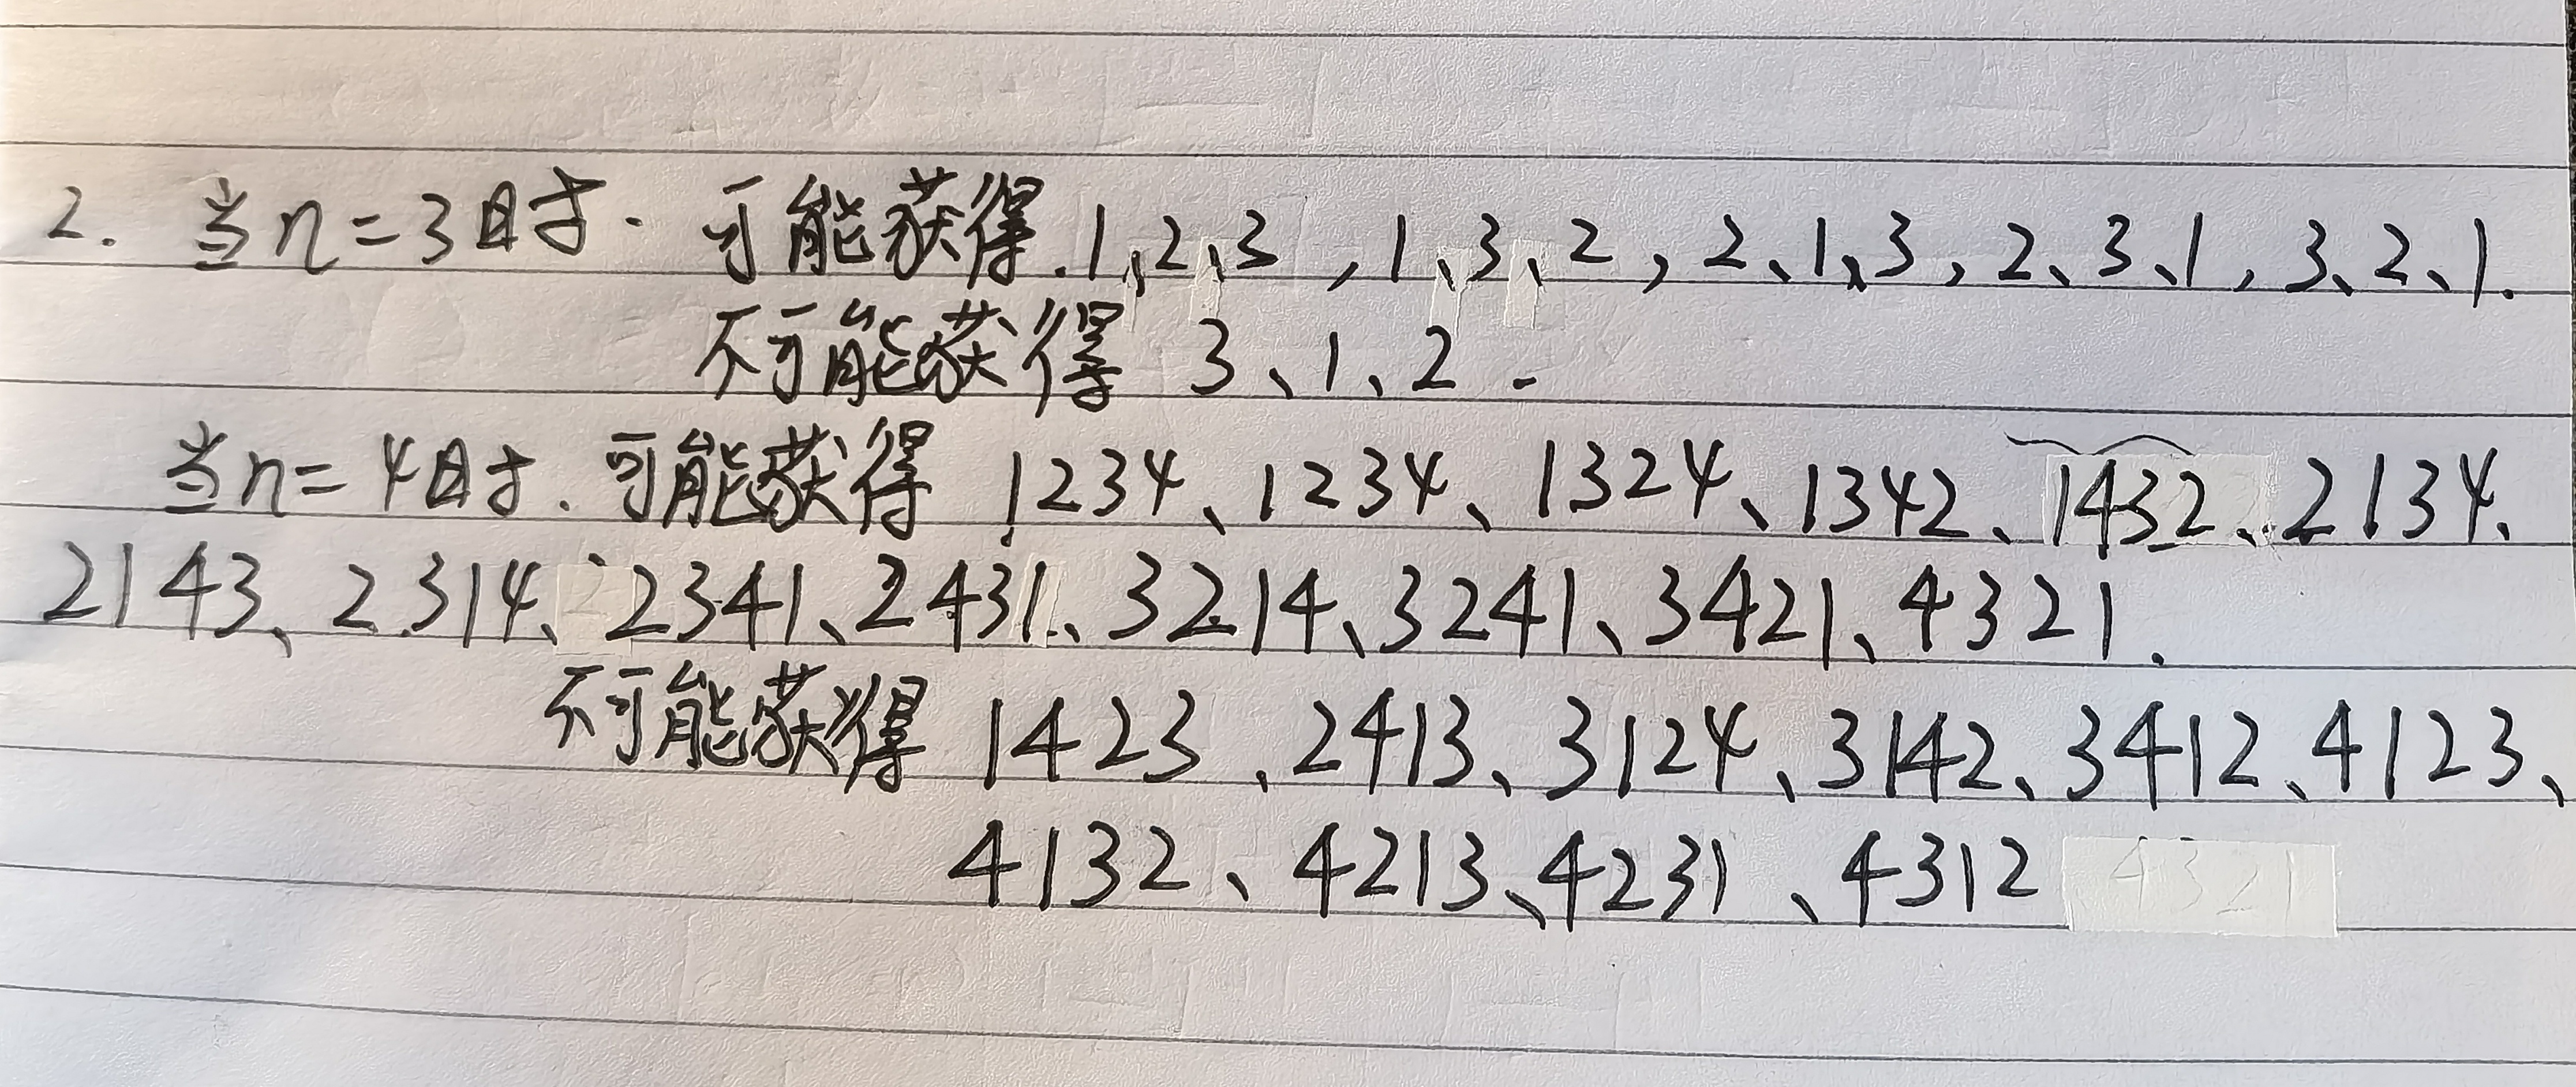 2. 当n=3时. 可能获得.1、2、3,1、3、2,2、1、3,2、3、1,3、2、1.
不可能获得 3、1、2.
当n=4时.可能获得 1234、1234、1324、1342、1432、2134、
2143、2314、2341、2431、3214、3241、3421、4321.
不可能获得 1423、2413、3124、3142、3412、4123、
4132、4213、4231、4312